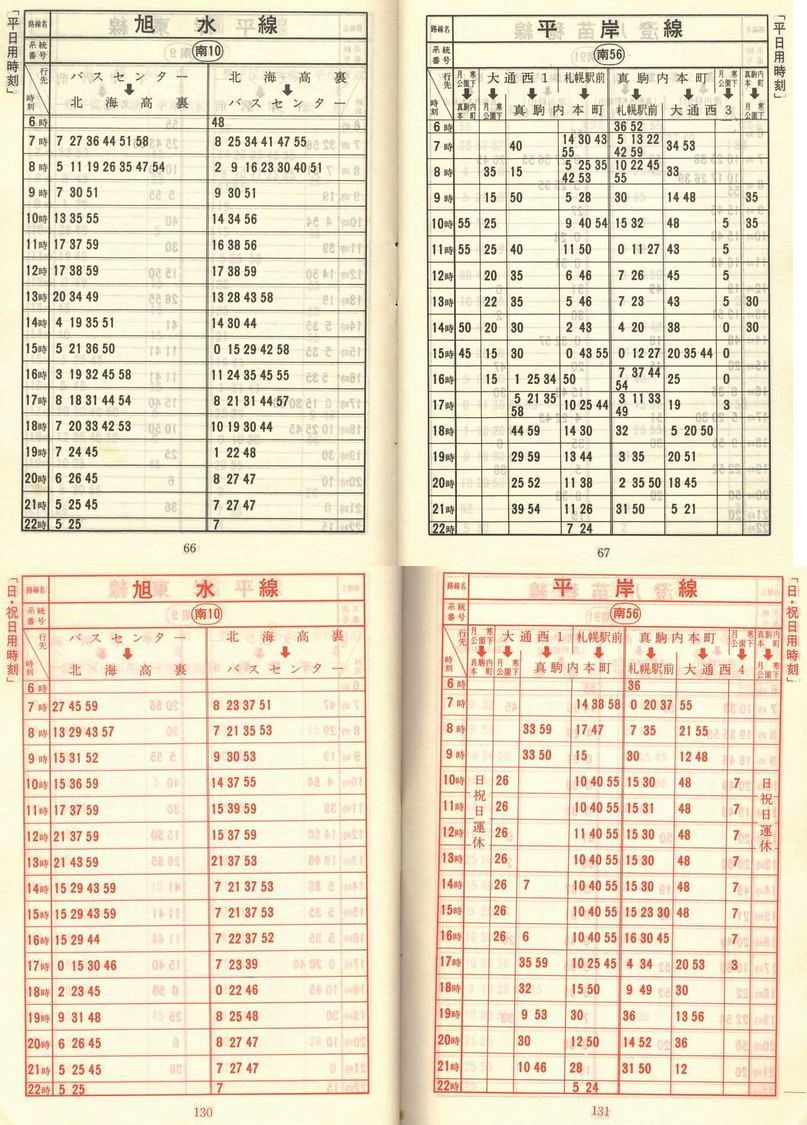 「平日用時刻」
路線名 旭水線
系統番号 南10
行先 時刻
バスセンター 北海高裏
北海高裏 バスセンター
6時 48
7時 7 27 36 44 51 58 8 25 34 41 47 55
8時 5 11 19 26 35 47 54 2 9 16 23 30 40 51
9時 7 30 51 9 30 51
10時 13 35 55 14 34 56
11時 17 37 59 16 38 56
12時 17 38 59 17 38 59
13時 20 34 49 13 28 43 58
14時 4 19 35 51 14 30 44
15時 5 21 36 50 0 15 29 42 58
16時 3 19 32 45 58 11 24 35 45 55
17時 8 18 31 44 54 8 21 31 44 57
18時 7 20 33 42 53 10 19 30 44
19時 7 24 45 1 22 48
20時 6 26 45 8 27 47
21時 5 25 45 7 27 47
22時 5 25 7
66
「平日用時刻」
路線名 平岸線
系統番号 南56
行先 時刻
月寒公園下 大通西1 札幌駅前 真駒内本町 月寒公園下 真駒内本町
真駒内本町 月寒公園下 真駒内本町 札幌駅前 大通西3 真駒内本町 月寒公園下
6時 36 52
7時 40 14 30 43 55 5 13 22 42 59 34 53
8時 35 15 5 25 35 42 53 10 22 45 55 33
9時 15 50 5 28 30 14 48 35
10時 55 25 9 40 54 15 32 48 5 35
11時 55 25 40 11 50 0 11 27 43 5
12時 20 35 6 46 7 26 45 5
13時 22 35 5 46 7 23 43 5 30
14時 50 20 30 2 43 4 20 38 0 30
15時 45 15 30 0 43 55 0 12 27 20 35 44 0
16時 15 1 25 34 50 7 37 44 54 25 0
17時 5 21 35 58 10 25 44 3 11 33 49 19 3
18時 44 59 14 30 32 5 20 50
19時 29 59 13 44 3 35 20 51
20時 25 52 11 38 2 35 50 18 45
21時 39 54 11 26 31 50 5 21
22時 7 24
67
「日・祝日用時刻」
路線名 旭水線
系統番号 南10
行先 時刻
バスセンター 北海高裏
北海高裏 バスセンター
6時
7時 27 45 59 8 23 37 51
8時 13 29 43 57 7 21 35 53
9時 15 31 52 9 30 53
10時 15 36 59 14 37 55
11時 17 37 59 15 39 59
12時 21 37 59 15 37 59
13時 21 43 59 21 37 53
14時 15 29 43 59 7 21 37 53
15時 15 29 43 59 7 21 37 53
16時 15 29 44 7 22 37 52
17時 0 15 30 46 7 23 39
18時 2 23 45 0 22 46
19時 9 31 48 8 25 48
20時 6 26 45 8 27 47
21時 5 25 45 7 27 47
22時 5 25 7
130
「日・祝日用時刻」
路線名 平岸線
系統番号 南56
行先 時刻
月寒公園下 大通西1 札幌駅前 真駒内本町 月寒公園下 真駒内本町
真駒内本町 月寒公園下 真駒内本町 札幌駅前 大通西4 真駒内本町 月寒公園下
6時 36
7時 14 38 58 0 20 37 55
8時 33 59 17 47 7 35 21 55
9時 33 50 15 30 12 48
10時 26 10 40 55 15 30 48 7
11時 26 10 40 55 15 31 48 7
12時 26 11 40 55 15 30 48 7
13時 26 10 40 55 15 30 48 7
14時 26 7 10 40 55 15 30 48 7
15時 26 10 40 55 15 23 30 48 7
16時 26 6 10 40 55 16 30 45 7
17時 35 59 10 25 45 4 34 20 53 3
18時 32 15 50 9 49 30
19時 9 53 30 36 13 56
20時 30 12 50 14 52 36
21時 10 46 28 31 50 12
22時 5 24
日祝日運休
日祝日運休
131